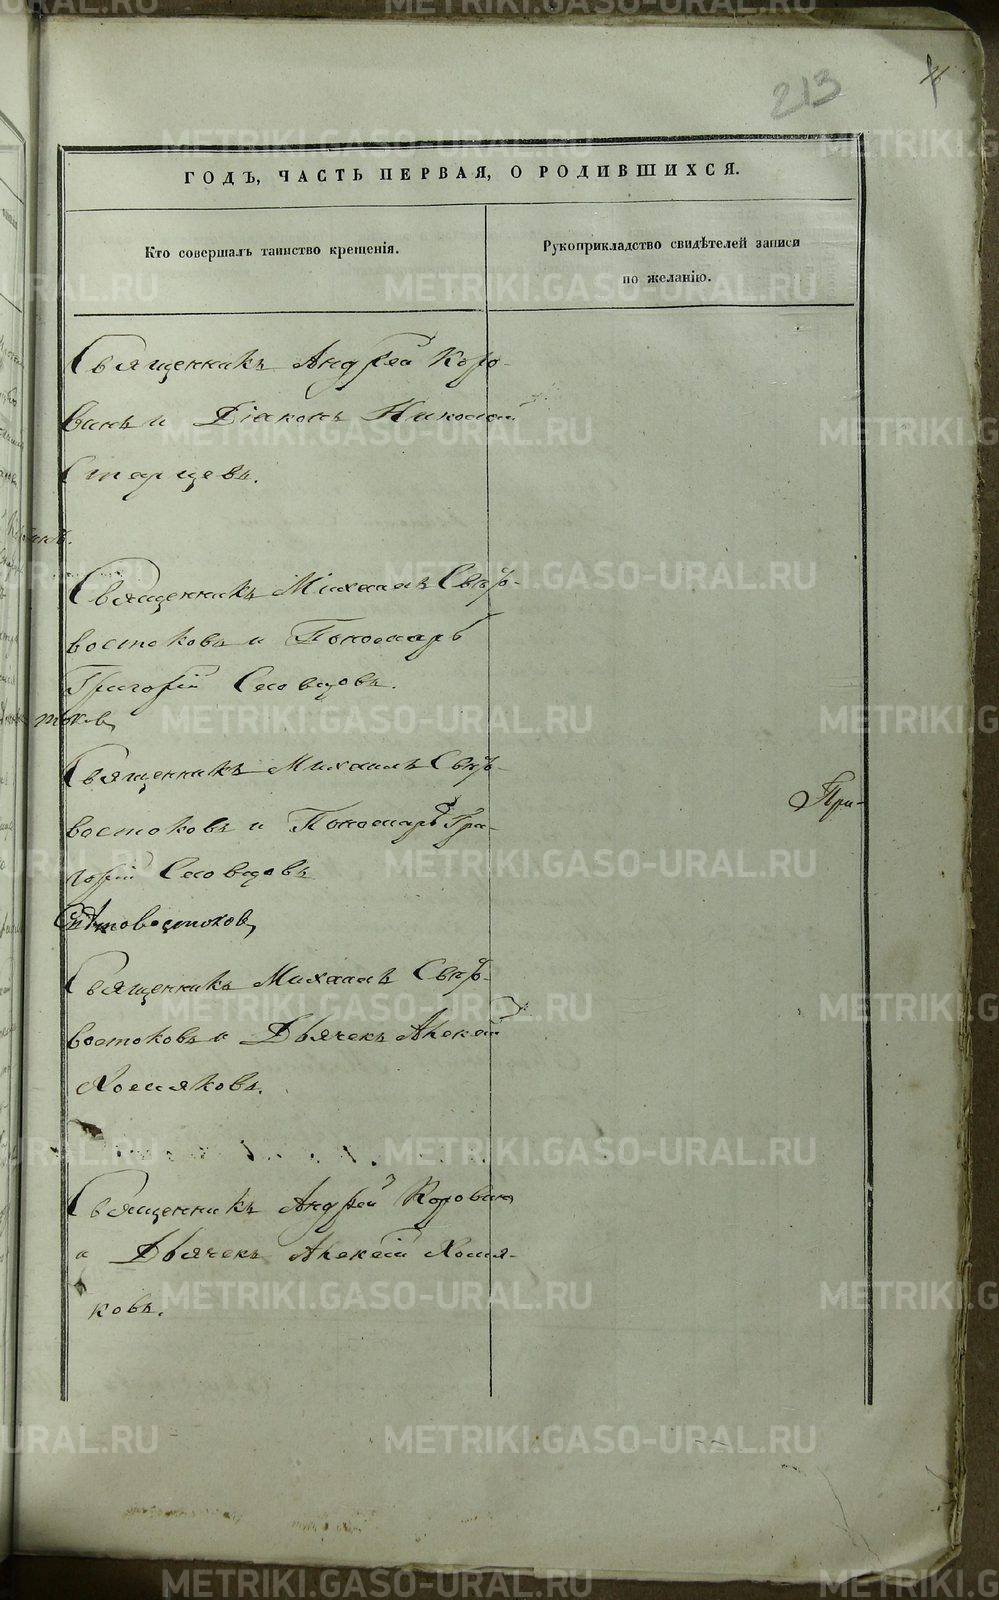 213
ГОДЪ, ЧАСТЬ ПЕРВАЯ, О РОДИВШИХСЯ.
Кто совершалъ таинство крещенія.
Рукоприкладство свидѣтелей записи
по желанію.
Священникъ Андрей Коро-
винъ и Діаконъ Николай
Старцевъ.
Священникъ Михаилъ Свѣто-
востоковъ и Пономарь
Григорій Словцовъ.
токов
Священникъ Михаилъ Свѣто-
востоковъ и Пономарь Гри-
горій Словцовъ
Свѣтовостоков
Священникъ Михаилъ Свѣто-
востоковъ и Дьячекъ Алексій
Хомяковъ.
Священникъ Андрей Коровин
и Дьячекъ Алексій Хомя-
ковъ.
При-
METRIKI.GASO-URAL.RU